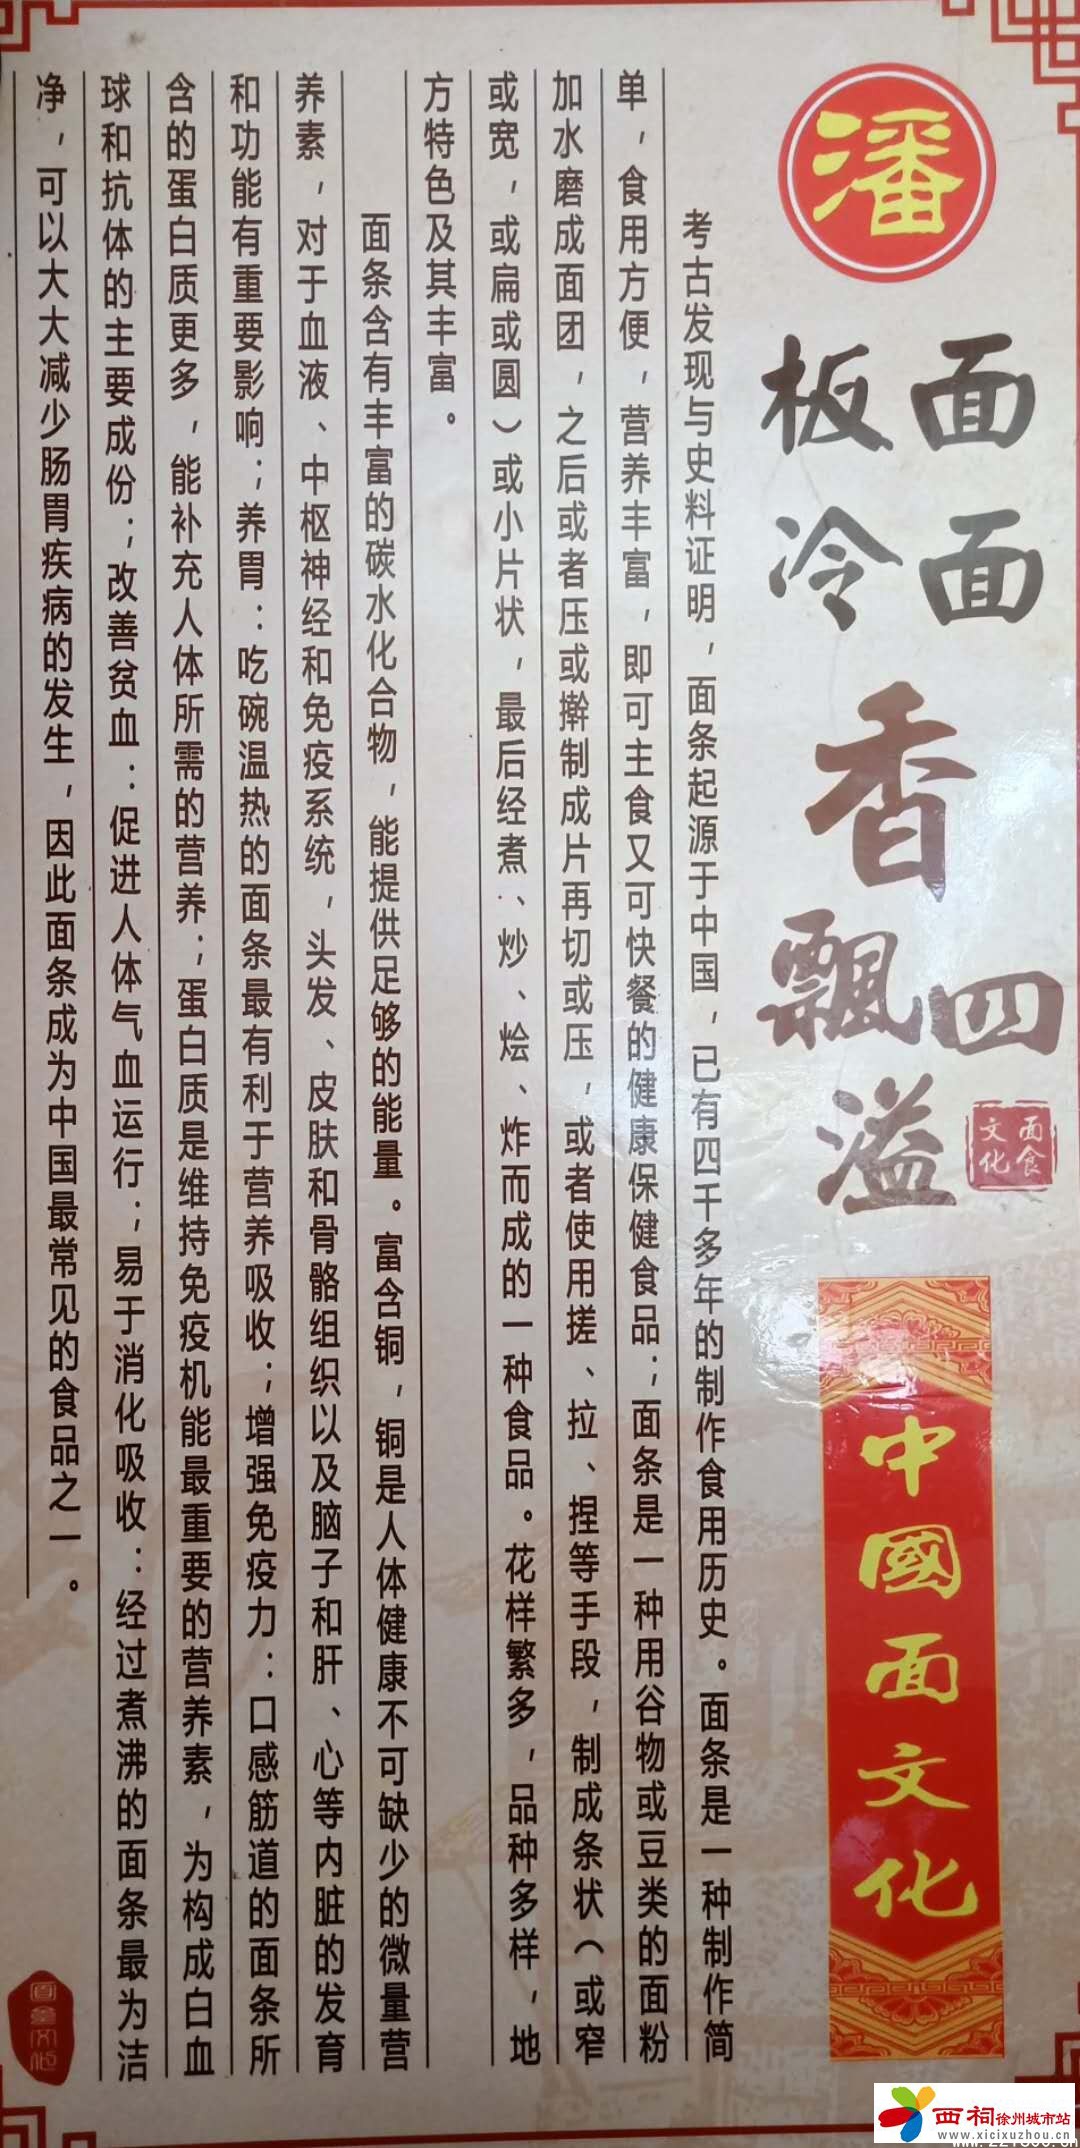 潘
板面
冷面
香飘四溢
面食文化
中國面文化
考古发现与史料证明，面条起源于中国，已有四千多年的制作食用历史。面条是一种制作简
单，食用方便，营养丰富，即可主食又可快餐的健康保健食品；面条是一种用谷物或豆类的面粉
加水磨成面团，之后或者压或擀制成片再切或压，或者使用搓、拉、捏等手段，制成条状（或窄
或宽，或扁或圆）或小片状，最后经煮、炒、烩、炸而成的一种食品。花样繁多，品种多样，地
方特色及其丰富。
面条含有丰富的碳水化合物，能提供足够的能量。富含铜，铜是人体健康不可缺少的微量营
养素，对于血液、中枢神经和免疫系统，头发、皮肤和骨骼组织以及脑子和肝、心等内脏的发育
和功能有重要影响；养胃：吃碗温热的面条最有利于营养吸收；增强免疫力：口感筋道的面条所
含的蛋白质更多，能补充人体所需的营养；蛋白质是维持免疫机能最重要的营养素，为构成白血
球和抗体的主要成份；改善贫血：促进人体气血运行；易于消化吸收：经过煮沸的面条最为洁
净，可以大大减少肠胃疾病的发生，因此面条成为中国最常见的食品之一。
西祠徐州城市站
www.xicixuzhou.cn